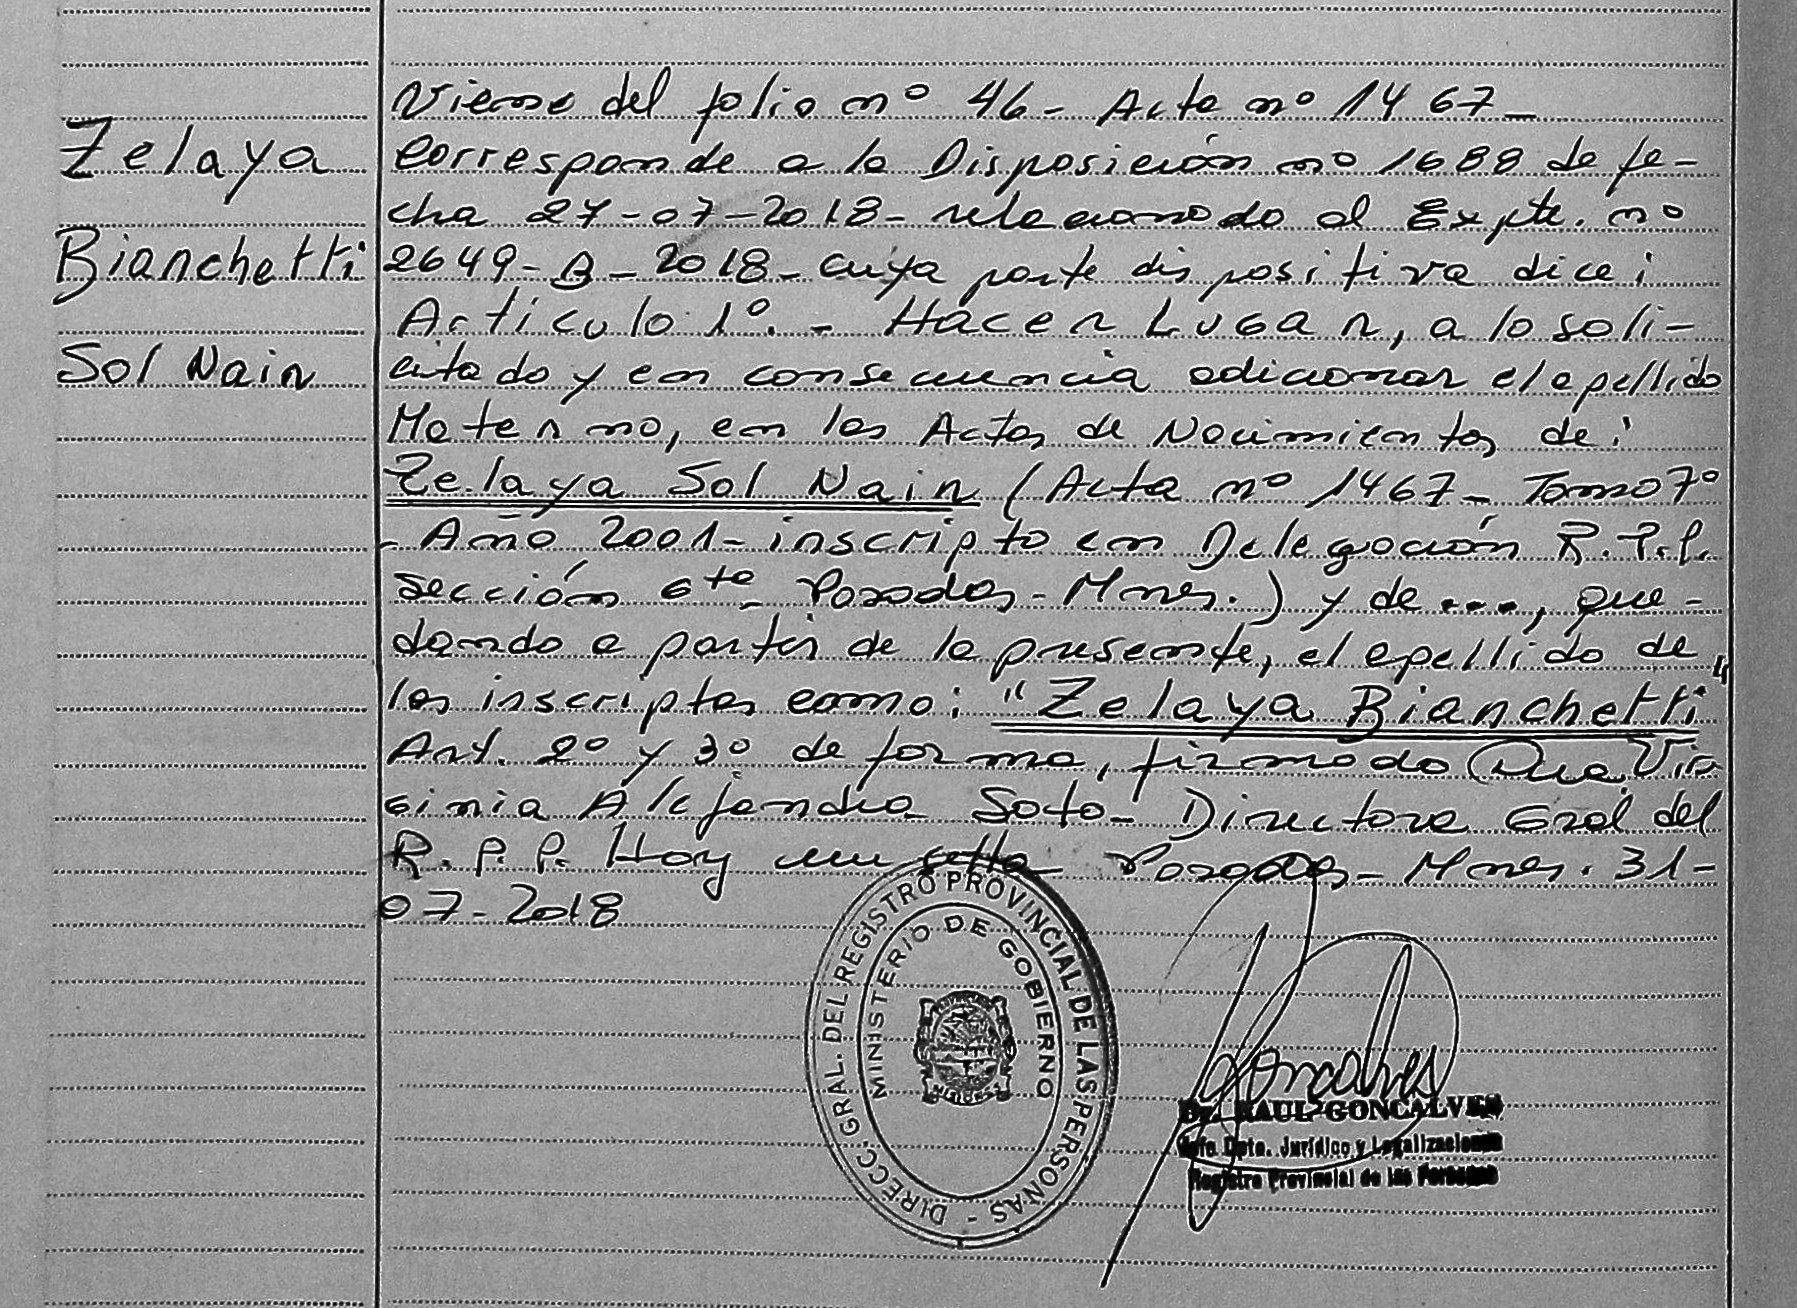 Zelaya
Bianchetti
Sol Nain
Viene del folio nº 46- Acta nº 1467-
Corresponde a la Disposición nº 1688 de fe-
cha 27-07-2018- relacionado al Expte. nº
2649-B-2018- cuya parte dispositiva dice:
Artículo 1º.- Hacer Lugar, a lo soli-
citado y en consecuencia adicionar el apellido
Materno, en las Actas de Nacimientos de:
Zelaya Sol Nain (Acta nº 1467- Tomo 7º
- Año 2001- inscripto en Delegación R.P.P.
sección 6ta- Posadas- Mnes.) y de ...., que-
dando a partir de la presente, el apellido de
los inscriptos como: "Zelaya Bianchetti"
Art. 2º y 3º de forma, firmado Dra. Vir-
ginia Alejandra Soto- Directora Gral del
R.P.P. Hoy un sello- Posadas- Mnes. 31-
07-2018
DIRECC. GRAL. DEL REGISTRO PROVINCIAL DE LAS PERSONAS -
MINISTERIO DE GOBIERNO
MISIONES
Goncalves
Dr. RAUL GONCALVES
Jefe Dpto. Jurídico y Legalizaciones
Registro Provincial de las Personas